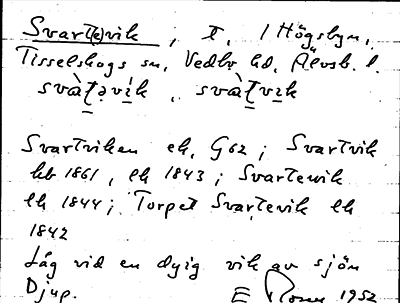 Svart(e)vik, t. / Högsbyn,
Tisselskogs sn, Vedbo hd, Älvsb. l.
svàt̯əvík, svàt̯vɪk
Svartviken ek, G62; Svartvik
hb 1861, lh 1843; Svartewik
lh 1844; Torpet Svartevik lh
1842
Låg vid en dyig vik av sjön
Djup. E Rosen 1952